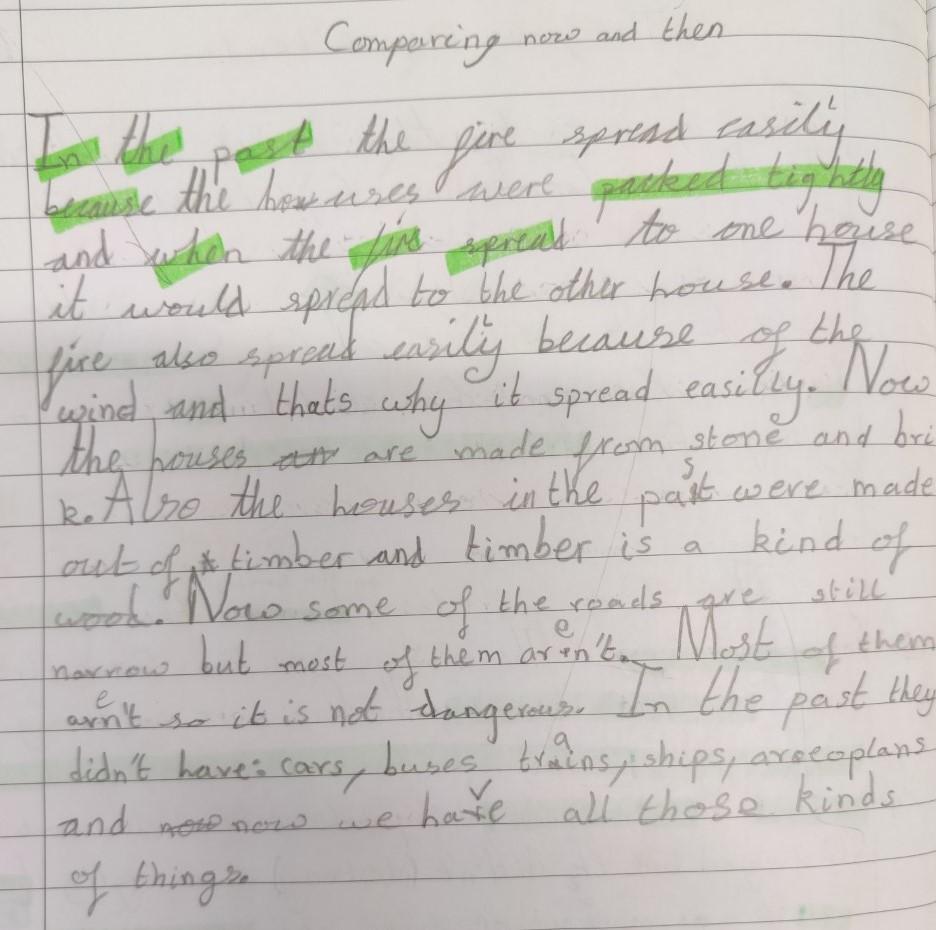 Comparing now and then
In the past the fire spread easily
because the houses were packed tightly
and when the fire spread to one house
it would spread to the other house. The
fire also spread easily because of the
wind and thats why it spread easilly. Now
the houses are made from stone and bri
k. Also the houses in the past were made
out of timber and timber is a kind of
wood. Now some of the roads are still
narrow but most of them aren't. Most of them
aren't so it is not dangerous. In the past they
didn't have: cars, buses trains, ships, aroeoplans
and now we have all those kinds
of things.